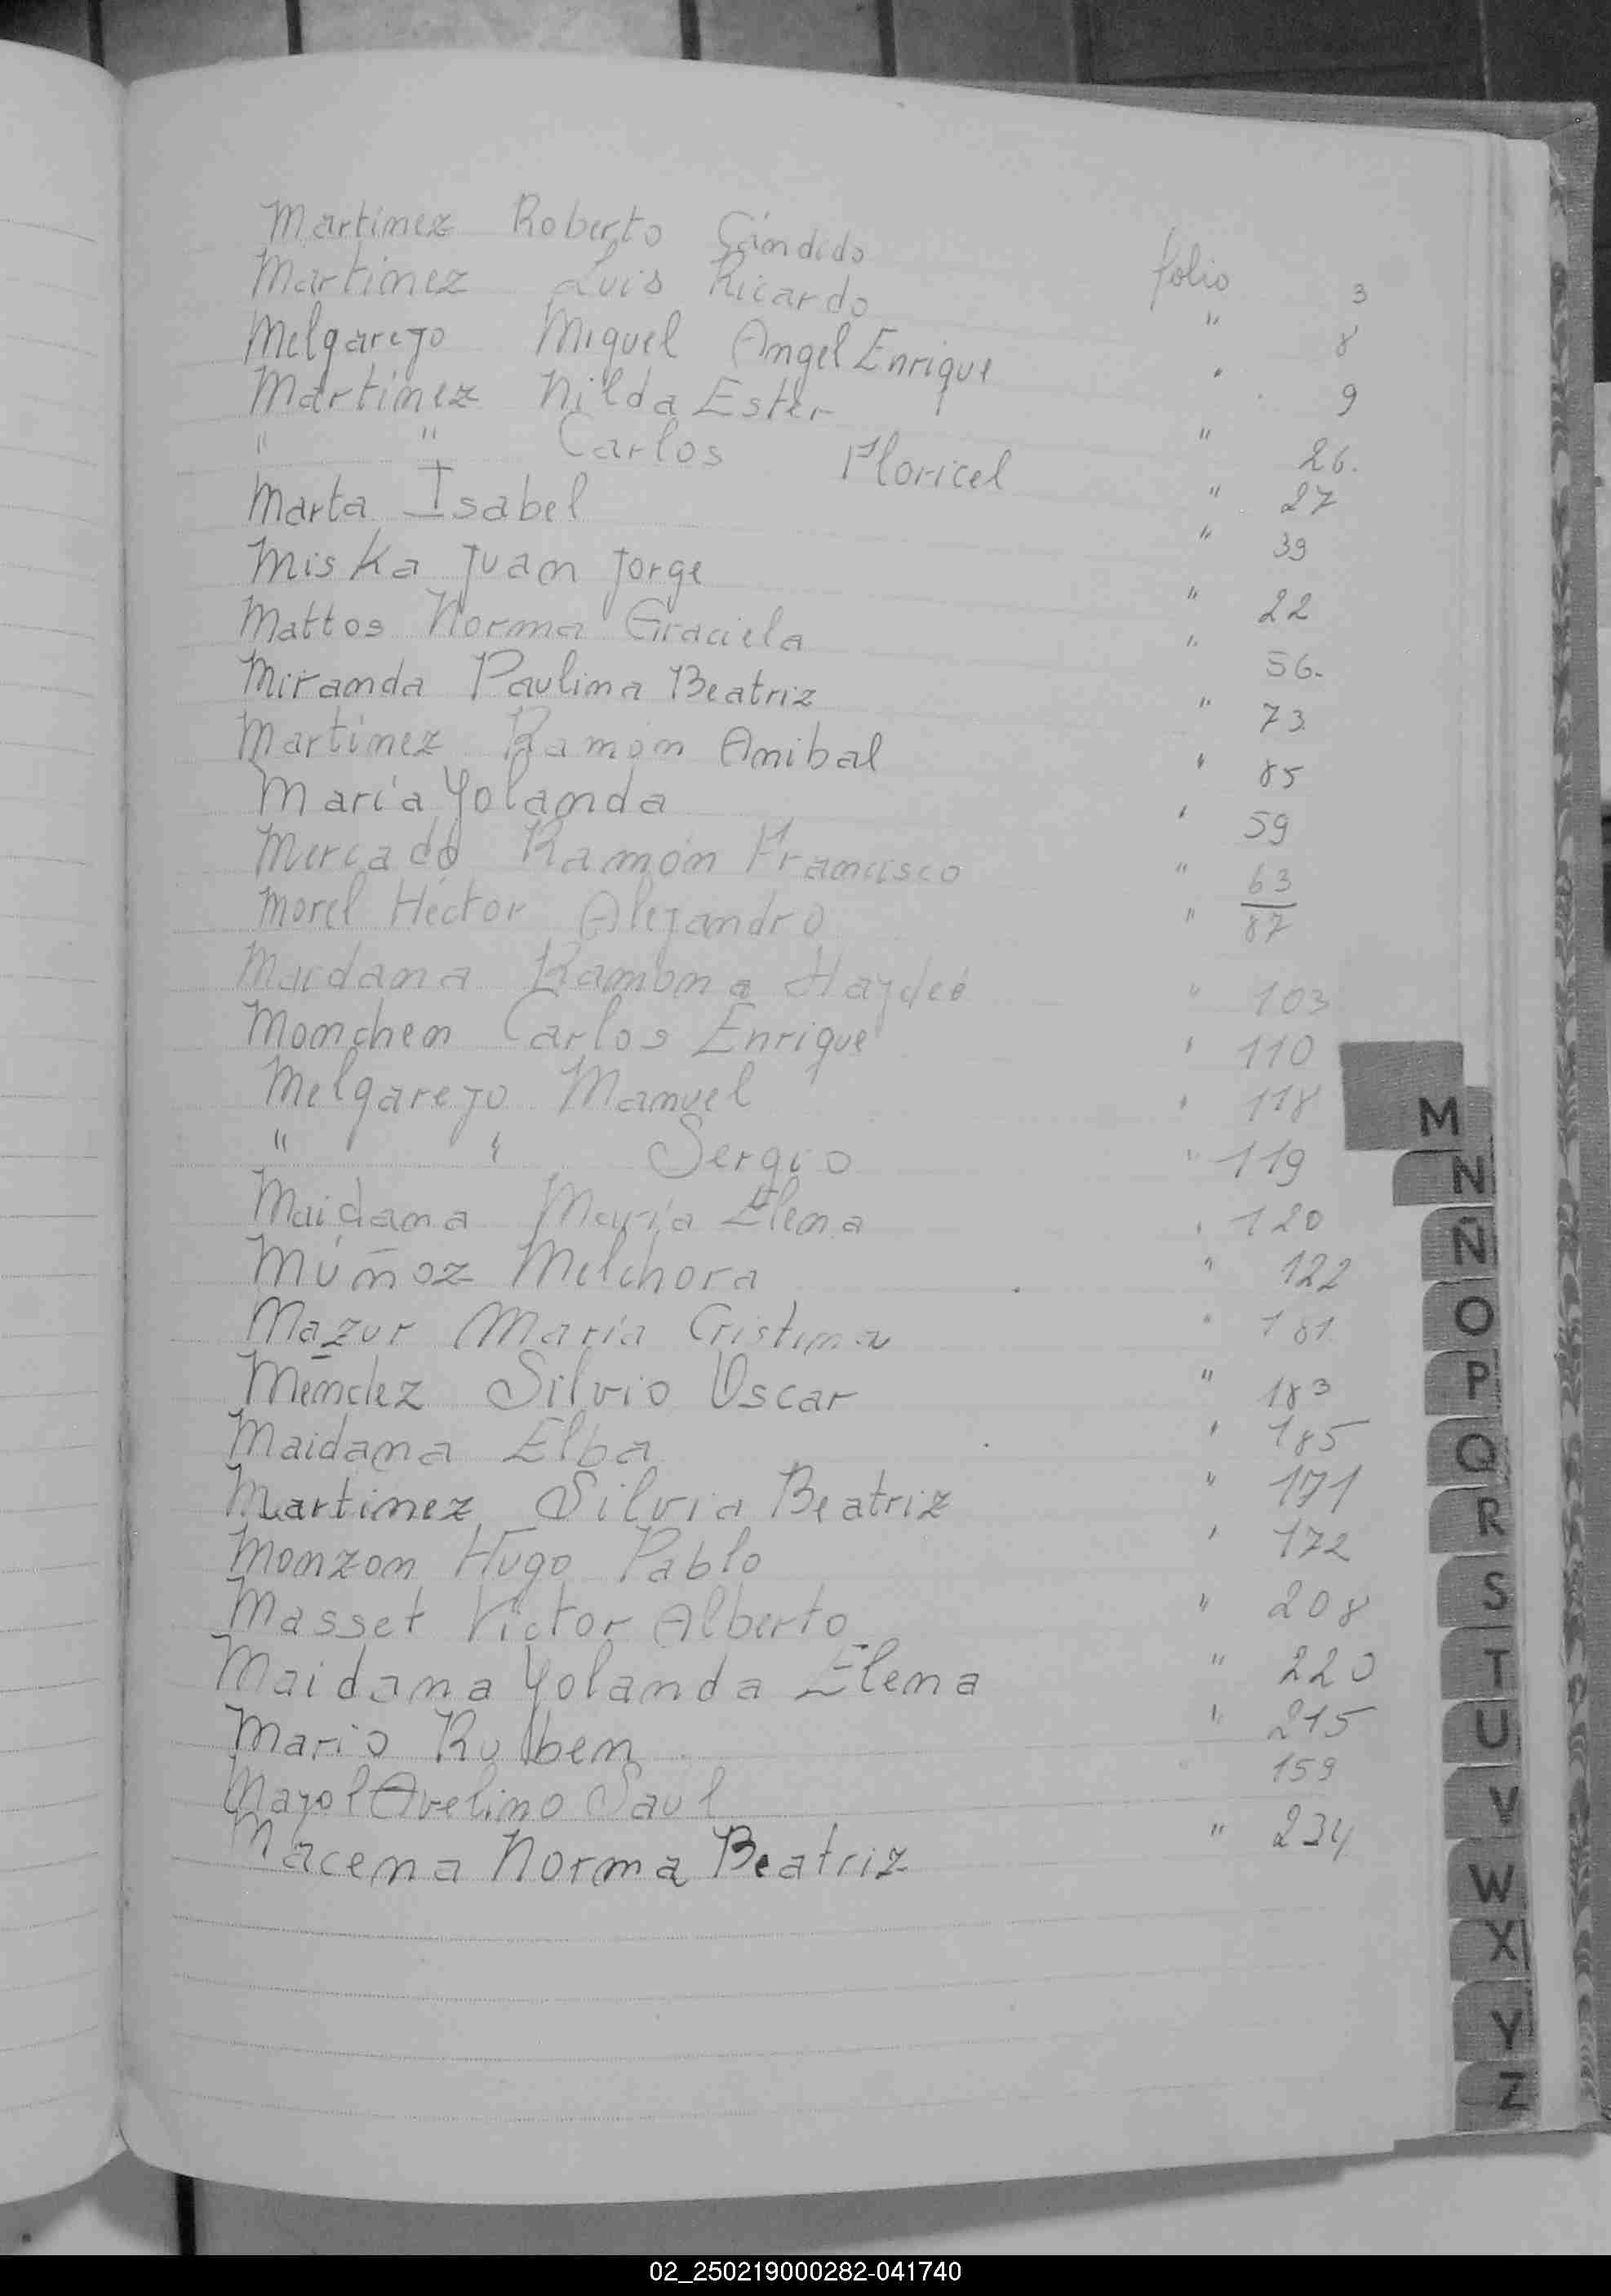 Martínez Roberto Cándido folio 3
Martínez Luis Ricardo " 8
Melgarejo Miguel Angel Enrique " 9
Martínez Nilda Ester " 26.
" " Carlos Floricel " 27
Marta Isabel " 39
Miska Juan Jorge " 22
Mattos Norma Graciela " 56.
Miranda Paulina Beatriz " 73
Martínez Ramón Anibal " 85
María Yolanda " 59
Mercado Ramón Francisco " 63
Morel Héctor Alejandro " 87
Maidana Ramona Haydeé " 103
Monchen Carlos Enrique " 110
Melgarejo Manuel " 118
" " Sergio " 119
Maidana María Elena " 120
Múñoz Melchora " 122
Mazur María Cristina " 181
Méndez Silvio Oscar " 183
Maidana Elba " 185
Martinez Silvia Beatriz " 171
Monzon Hugo Pablo " 172
Masset Victor Alberto " 208
Maidana Yolanda Elena " 220
Mario Rubben " 215
Mayol Avelino Saul 159
Macena Norma Beatriz " 234
M
N
Ñ
O
P
Q
R
S
T
U
V
W
X
Y
Z
02_250219000282-041740